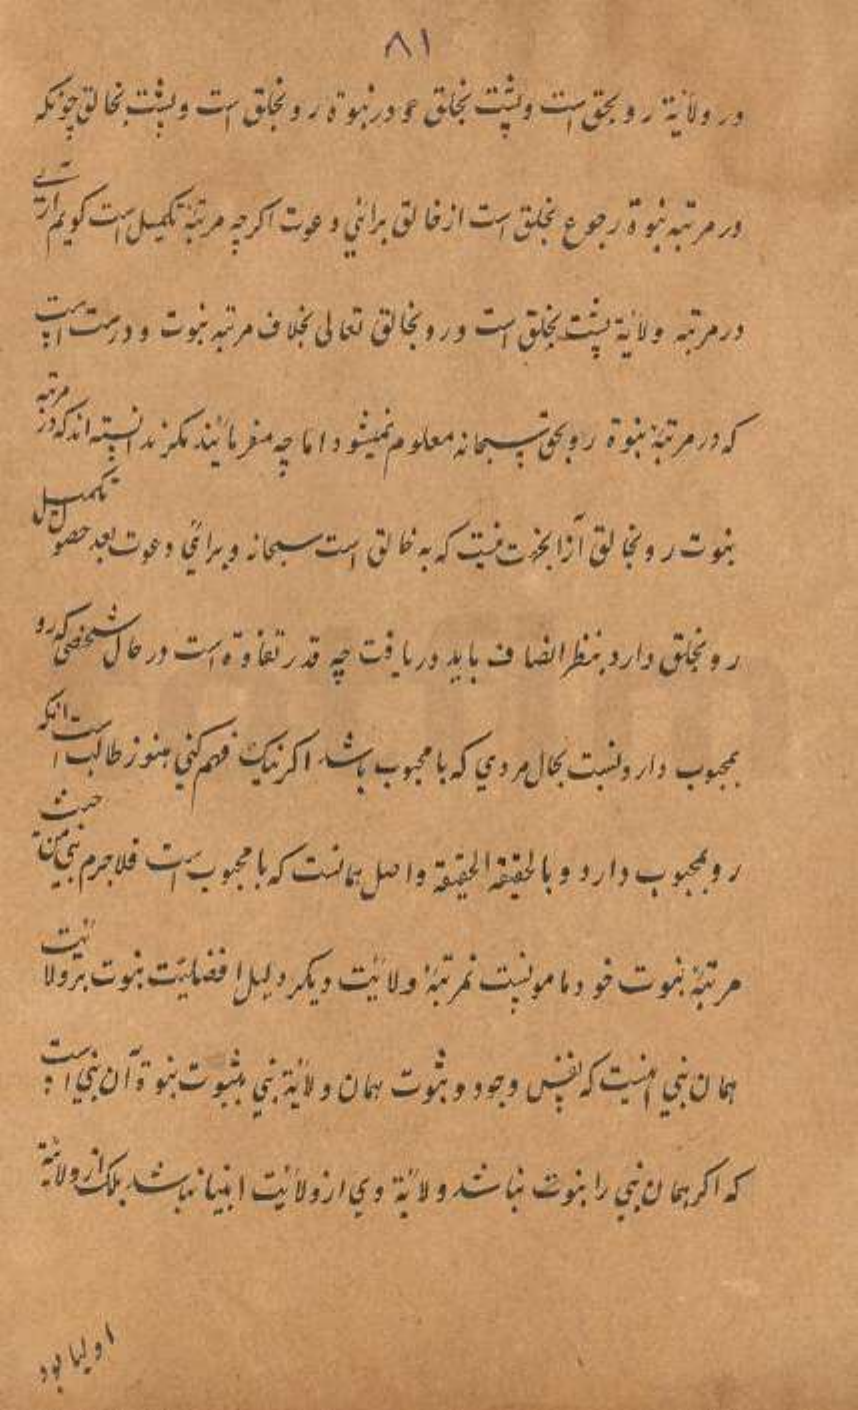 ۸۱
در ولایة رو بحق است و پشت بخلق و در نبوة رو بخلق است و پشت بخالق چونکه
در مرتبه نبوة رجوع بخلق است از خالق برائي دعوت اکرچه مرتبۀ تکمیل است کویم آرے
در مرتبه ولایة پشت بخلق است و رو بخالق تعالی بخلاف مرتبه نبوت و درست است
که در مرتبۀ نبوة رو بحق سبحانه معلوم نمیشود اما چه میفرمایند مکر ندانسته اند که در مرتبه
نبوت رو بخالق آنرا بخت نیست که به خالق است سبحانه و برائي دعوت بعد حصول تکمیل
رو بخلق دارد بنظر انصاف باید دریافت چه قدر تفاوته است در حال شخصی که رو
بمحبوب دارد و نسبت بحال مردي که با محبوب باشد اکر نیک فهم کني هنوز طالب است انکه
رو بمحبوب دارد و بالحقیقة الحقیقة واصل همانست که با محبوب است فلاجرم نبي من حیث
مرتبۀ نبوت خود مامور نیست نمرتبۀ ولائیت دیکر دلیل افضلیت نبوت بر ولائیت
همان نبي اینست که نفس وجود و ثبوت همان ولایة نبي بثبوت نبوة آن نبي است
که اکر همان نبي را نبوت نباشد ولایة وي از ولائیت انبیا نباشد بلک از ولائیة
اولیا بود